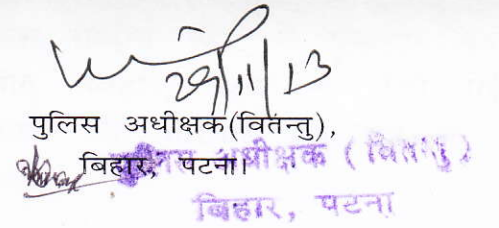 29/11/13
पुलिस अधीक्षक(वितन्तु),
बिहार, पटना।
पुलिस अधीक्षक (वितन्तु)
बिहार, पटना